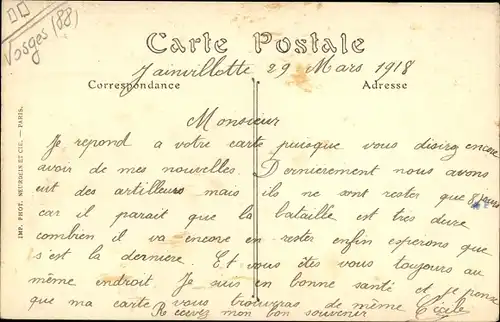 Vosges (88)
Carte Postale
Jainvillotte 29 Mars 1918
Correspondance
Adresse
Monsieur
Je repond a votre carte puisque vous disirez encore
avoir de mes nouvelles. Dernierement nous avons
eut des artilleurs mais ils ne sont rester que 8 jours
car il parait que la bataille est tres dure
combien il va encore en rester enfin esperons que
s'est la derniere. Et vous êtes vous toujours au
même endroit Je suis en bonne santé et je pense
que ma carte vous trouveras de même
Recevez mon bon souvenir Cécile
IMP. PHOT. NEURDEIN ET CIE. — PARIS.